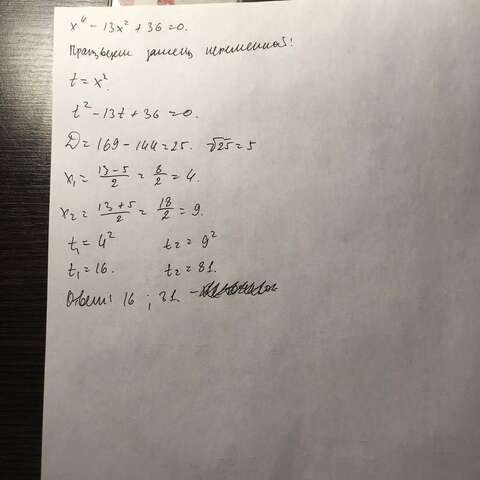 x⁴ - 13x² + 36 = 0.
Произведем замену переменной:
t = x².
t² - 13t + 36 = 0.
D = 169 - 144 = 25. √25 = 5
x₁ = (13 - 5)/2 = 8/2 = 4.
x₂ = (13 + 5)/2 = 18/2 = 9.
t₁ = 4² t₂ = 9²
t₁ = 16. t₂ = 81.
Ответ: 16 ; 81 -